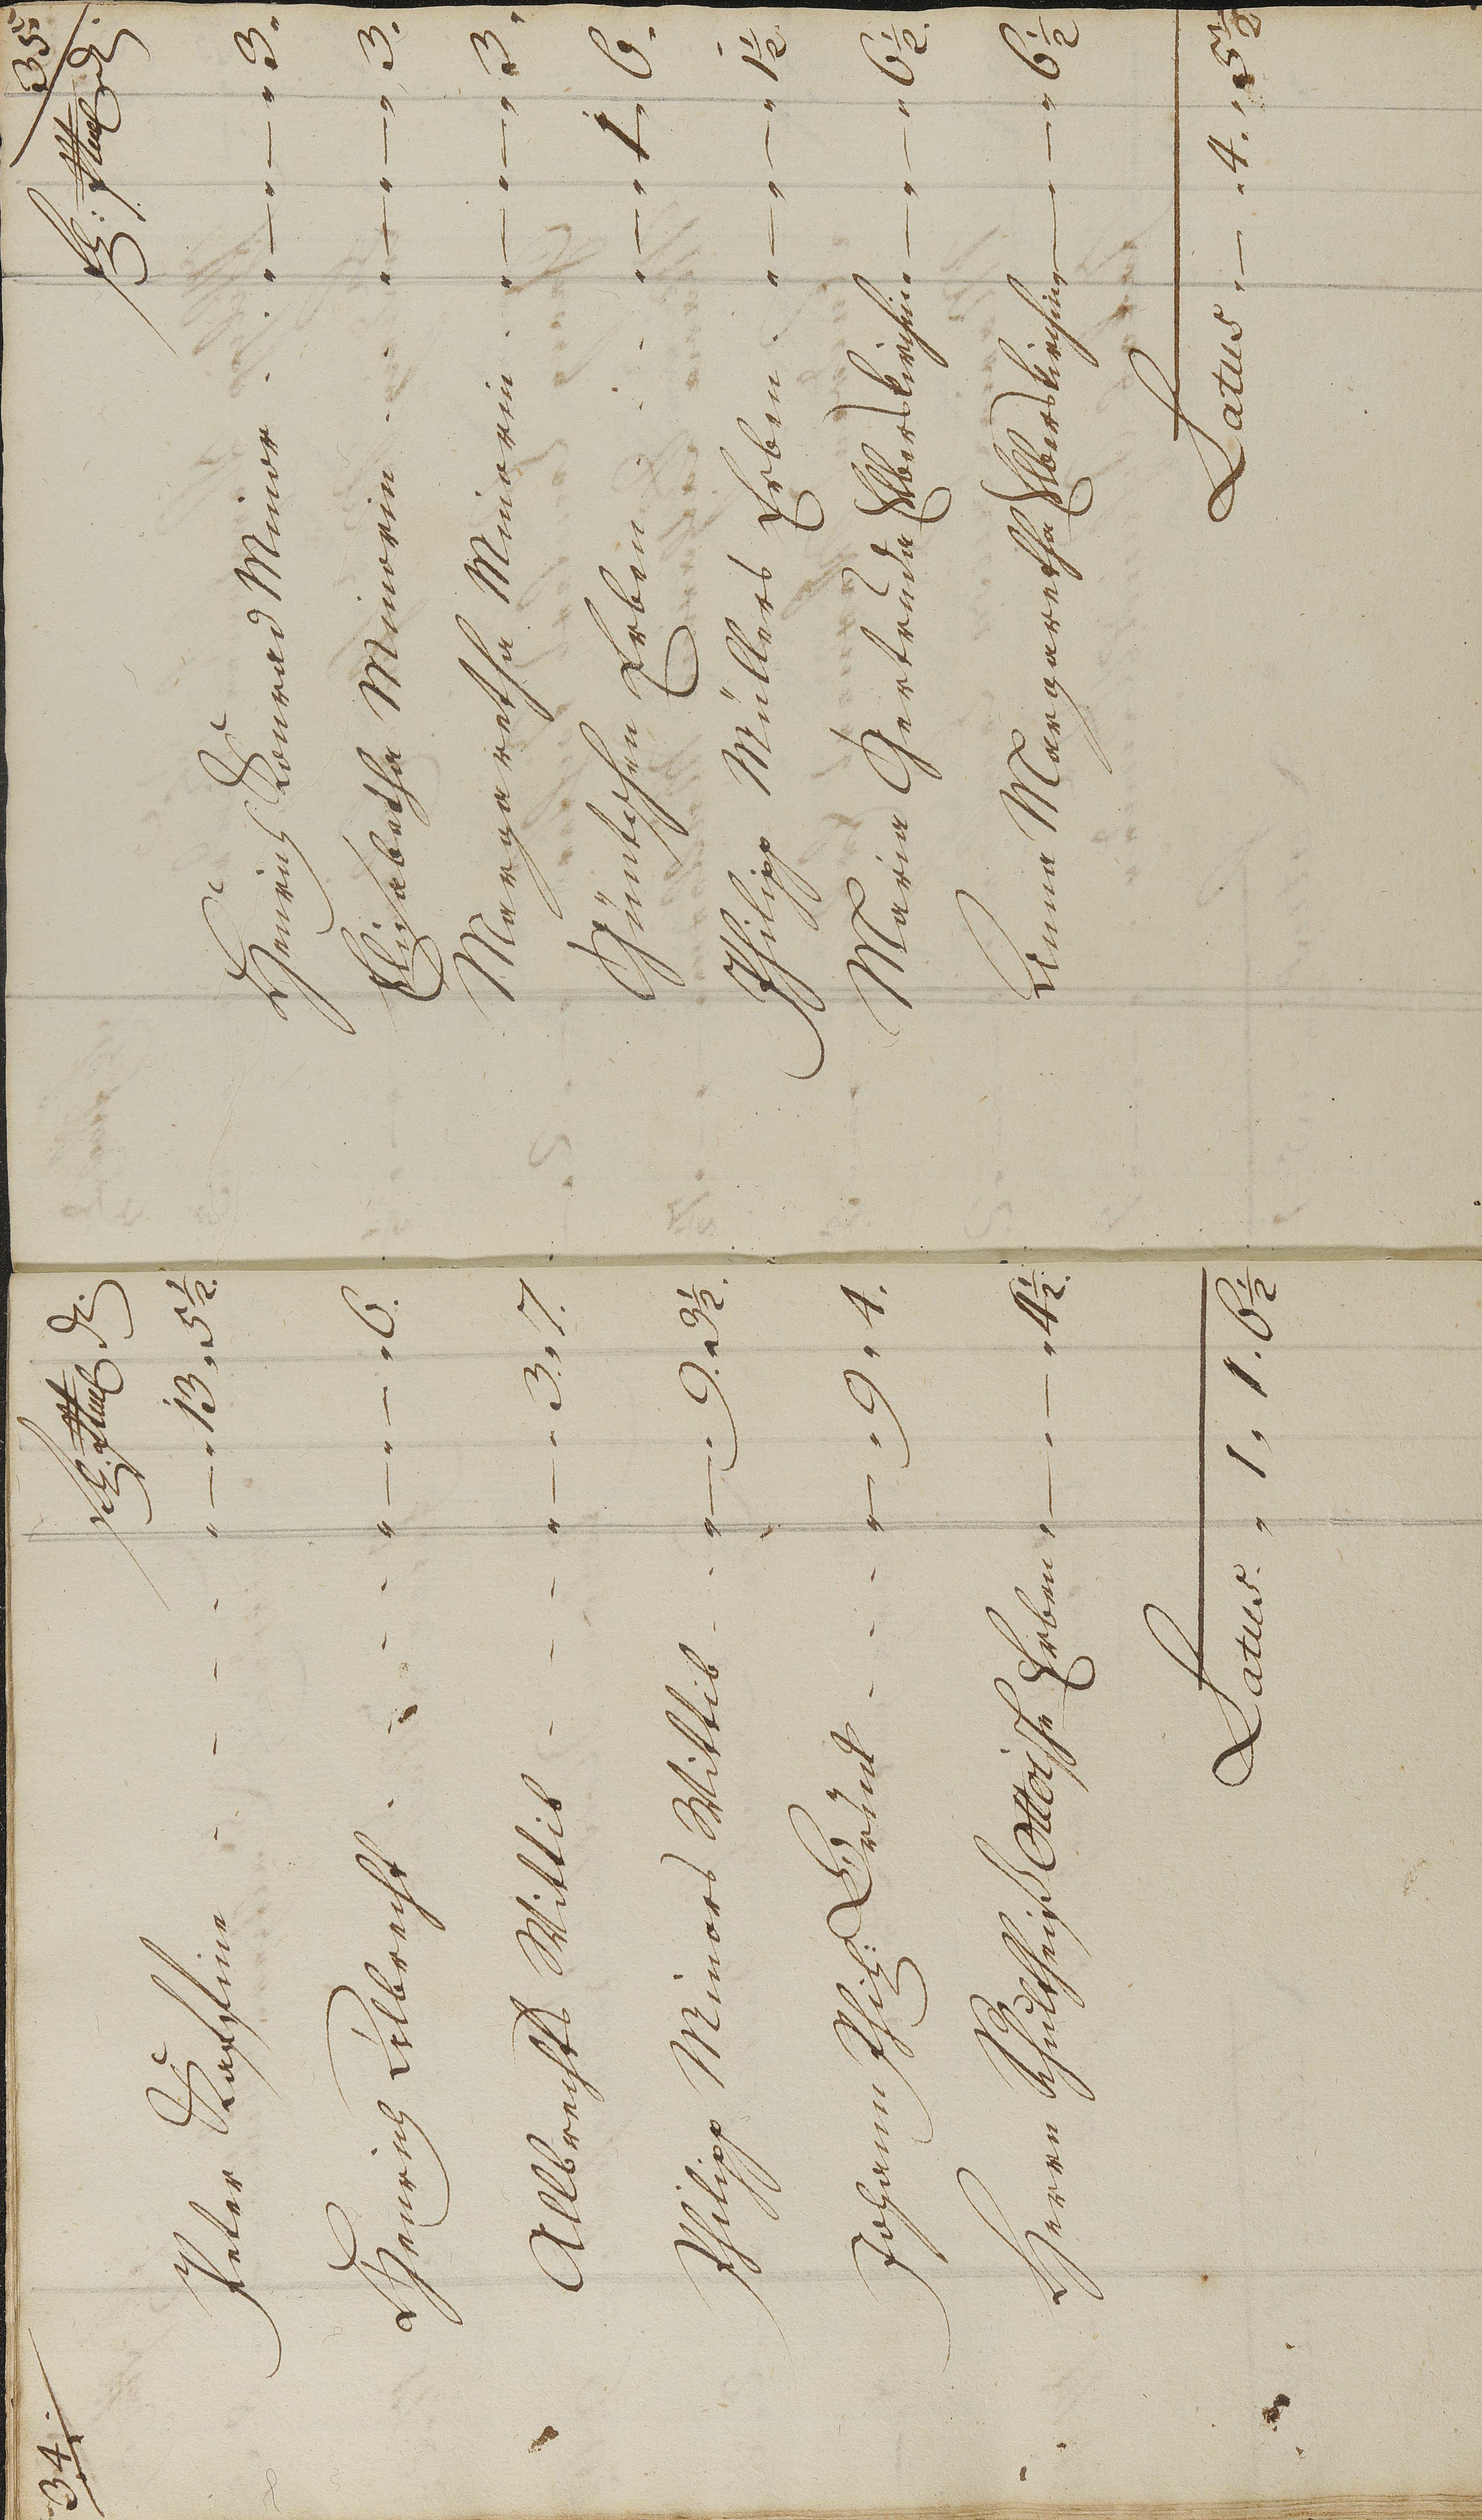 34.
fl: Alb. d.
Peter Kastine - - - - „ — „ 13 „ 5½.
Henrich Albrecht - - - - „ — „ — „ 6.
Albrechts Wittib - - - „ — „ 3 „ 7.
Philipp Minors Wittib - - „ — „ 9 „ 3½.
Johann Phil: Bründ - - - „ — „ 9 „ 4.
Herrn Schultheiß Ottoische Erben „ — „ — „ 4½.
Latus „ 1 „ 1 „ 6½
35.
fl: Alb. d.
Henrich Conrad Minor - - „ — „ — „ 3.
Elisabetha Minorin - - „ — „ — „ 3.
Margaretha Minorin - „ — „ — „ 3.
Güntischen Erben - - - „ — „ 1 „ 6.
Philipp Müllers Erben - „ — „ — „ 1½.
Maria Gertruda Elberskirchin „ — „ — „ 6½.
Anna Margaretha Elberskirchin „ — „ — „ 6½
Latus „ — „ 4 „ 5½